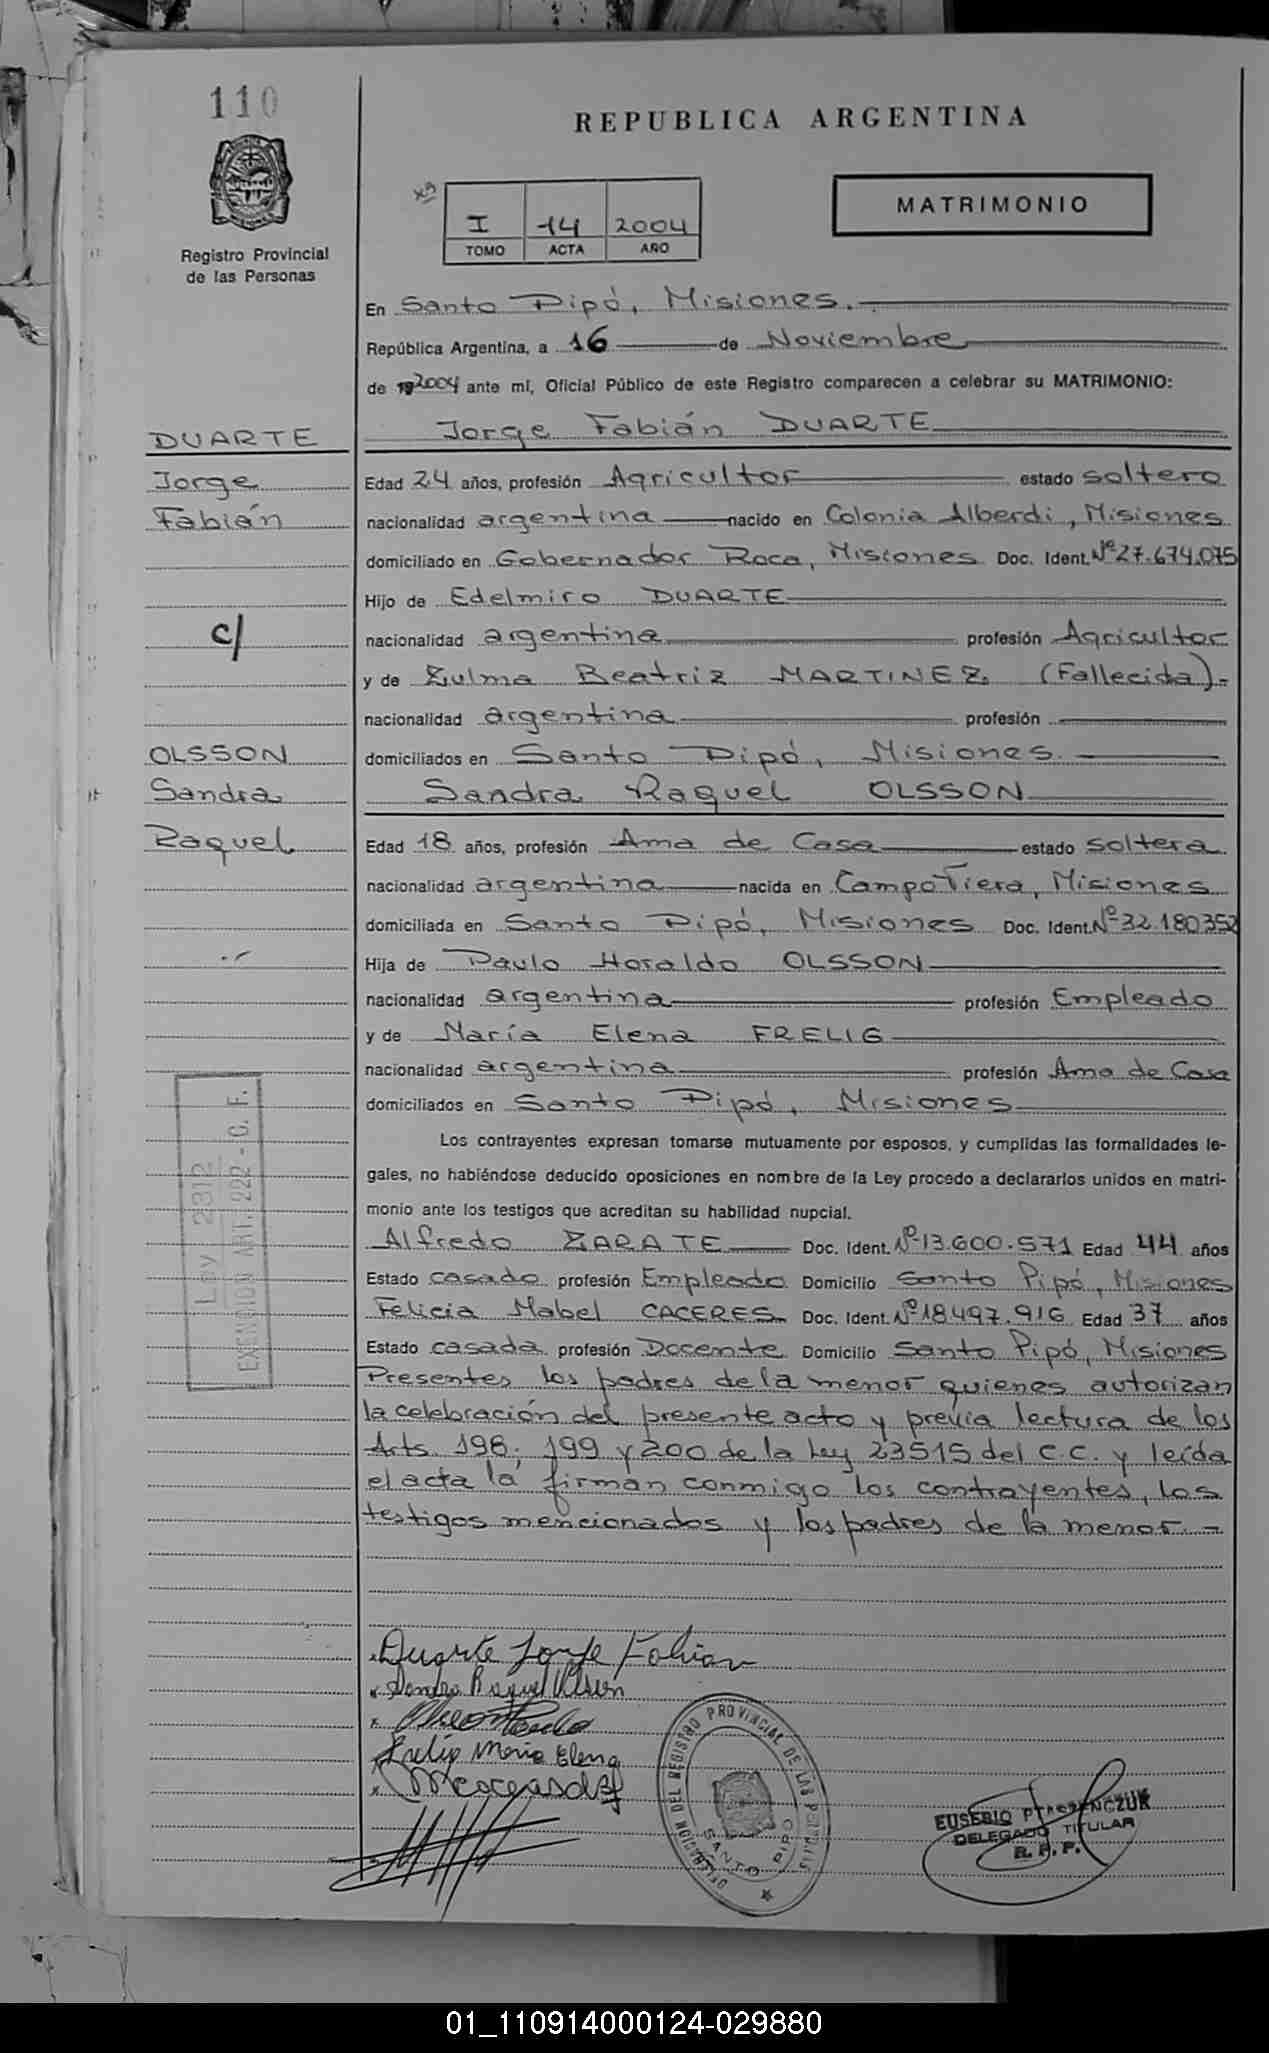 110
REPUBLICA ARGENTINA
MATRIMONIO
I 14 2004
TOMO ACTA AÑO
Registro Provincial
de las Personas
En Santo Pipó, Misiones.
República Argentina, a 16 de Noviembre
de 2004 ante mí, Oficial Público de este Registro comparecen a celebrar su MATRIMONIO:
DUARTE
Jorge
Fabián
c/
OLSSON
Sandra
Raquel
Jorge Fabián DUARTE
Edad 24 años, profesión Agricultor estado soltero
nacionalidad argentina nacido en Colonia Alberdi, Misiones
domiciliado en Gobernador Roca, Misiones Doc. Ident. Nº 27.674.075
Hijo de Edelmiro DUARTE
nacionalidad argentina profesión Agricultor
y de Zulma Beatriz MARTINEZ (Fallecida).-
nacionalidad argentina profesión
domiciliados en Santo Pipó, Misiones.
Sandra Raquel OLSSON
Edad 18 años, profesión Ama de Casa estado soltera
nacionalidad argentina nacida en Campo Viera, Misiones
domiciliada en Santo Pipó, Misiones Doc. Ident. Nº 32.180.352
Hija de Paulo Horaldo OLSSON
nacionalidad argentina profesión Empleado
y de María Elena FRELIG
nacionalidad argentina profesión Ama de Casa
domiciliados en Santo Pipó, Misiones
Los contrayentes expresan tomarse mutuamente por esposos, y cumplidas las formalidades le-
gales, no habiéndose deducido oposiciones en nombre de la Ley procedo a declararlos unidos en matri-
monio ante los testigos que acreditan su habilidad nupcial.
Alfredo ZARATE Doc. Ident. Nº 13.600.571 Edad 44 años
Estado casado profesión Empleado Domicilio Santo Pipó, Misiones
Felicia Mabel CACERES Doc. Ident. Nº 18.497.916 Edad 37 años
Estado casada profesión Docente Domicilio Santo Pipó, Misiones
Presentes los padres de la menor quienes autorizan
la celebración del presente acto y previa lectura de los
Arts. 198; 199 y 200 de la Ley 23515 del C.C. y leída
el acta la firman conmigo los contrayentes, los
testigos mencionados y los padres de la menor.-
Ley 2312
EXENCION ART. 222 - C. F.
Duarte Jorge Fabian
Sandra Raquel Olsson
Frelig Maria Elena
DELEGACION DEL REGISTRO PROVINCIAL DE LAS PERSONAS
SANTO PIPO
EUSEBIO
DELEGADO TITULAR
R. P. P.
01_110914000124-029880